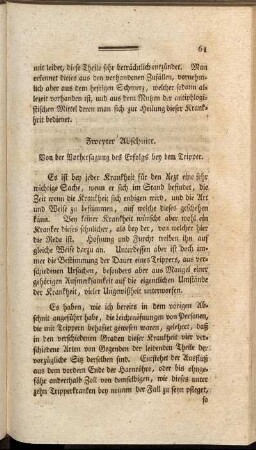 61
mit leidet, diese Theile sehr beträchtlich entzündet. Man
erkennet dieses aus den vorhandenen Zufällen, vornehm-
lich aber aus dem heftigen Schmerz, welcher sodann al-
lezeit vorhanden ist, und aus dem Nutzen der antiphlogi-
stischen Mittel deren man sich zur Heilung dieser Krank-
heit bedienet.
Zweyter Abschnitt.
Von der Vorhersagung des Erfolgs bey dem Tripper.
Es ist bey jeder Krankheit für den Arzt eine sehr
wichtige Sache, wenn er sich im Stand befindet, die
Zeit wenn die Krankheit sich endigen wird, und die Art
und Weise zu bestimmen, auf welche dieses geschehen
kann. Bey keiner Krankheit wünscht aber wohl ein
Kranker dieses sehnlicher, als bey der, von welcher hier
die Rede ist. Hofnung und Furcht treiben ihn auf
gleiche Weise darzu an. Unterdessen aber ist doch im-
mer die Bestimmung der Dauer eines Trippers, aus
verschiedenen Ursachen, besonders aber aus Mangel einer
gehörigen Aufmerksamkeit auf die eigentlichen Umstände
der Krankheit, vieler Ungewißheit unterworfen.
Es haben, wie ich bereits in dem vorigen Ab-
schnitt angeführt habe, die Leichenöfnungen von Personen,
die mit Trippern behaftet gewesen waren, gelehret, daß
in den verschiedenen Graden dieser Krankheit vier ver-
schiedene Arten von Gegenden der leidenden Theile der
vorzügliche Sitz derselben sind. Entstehet der Ausfluß
aus dem vordern Ende der Harnröhre, oder bis ohnge-
fähr anderthalb Zoll von demselbigen, wie dieses unter
zehn Tripperkranken bey neunen der Fall zu seyn pfleget,
so